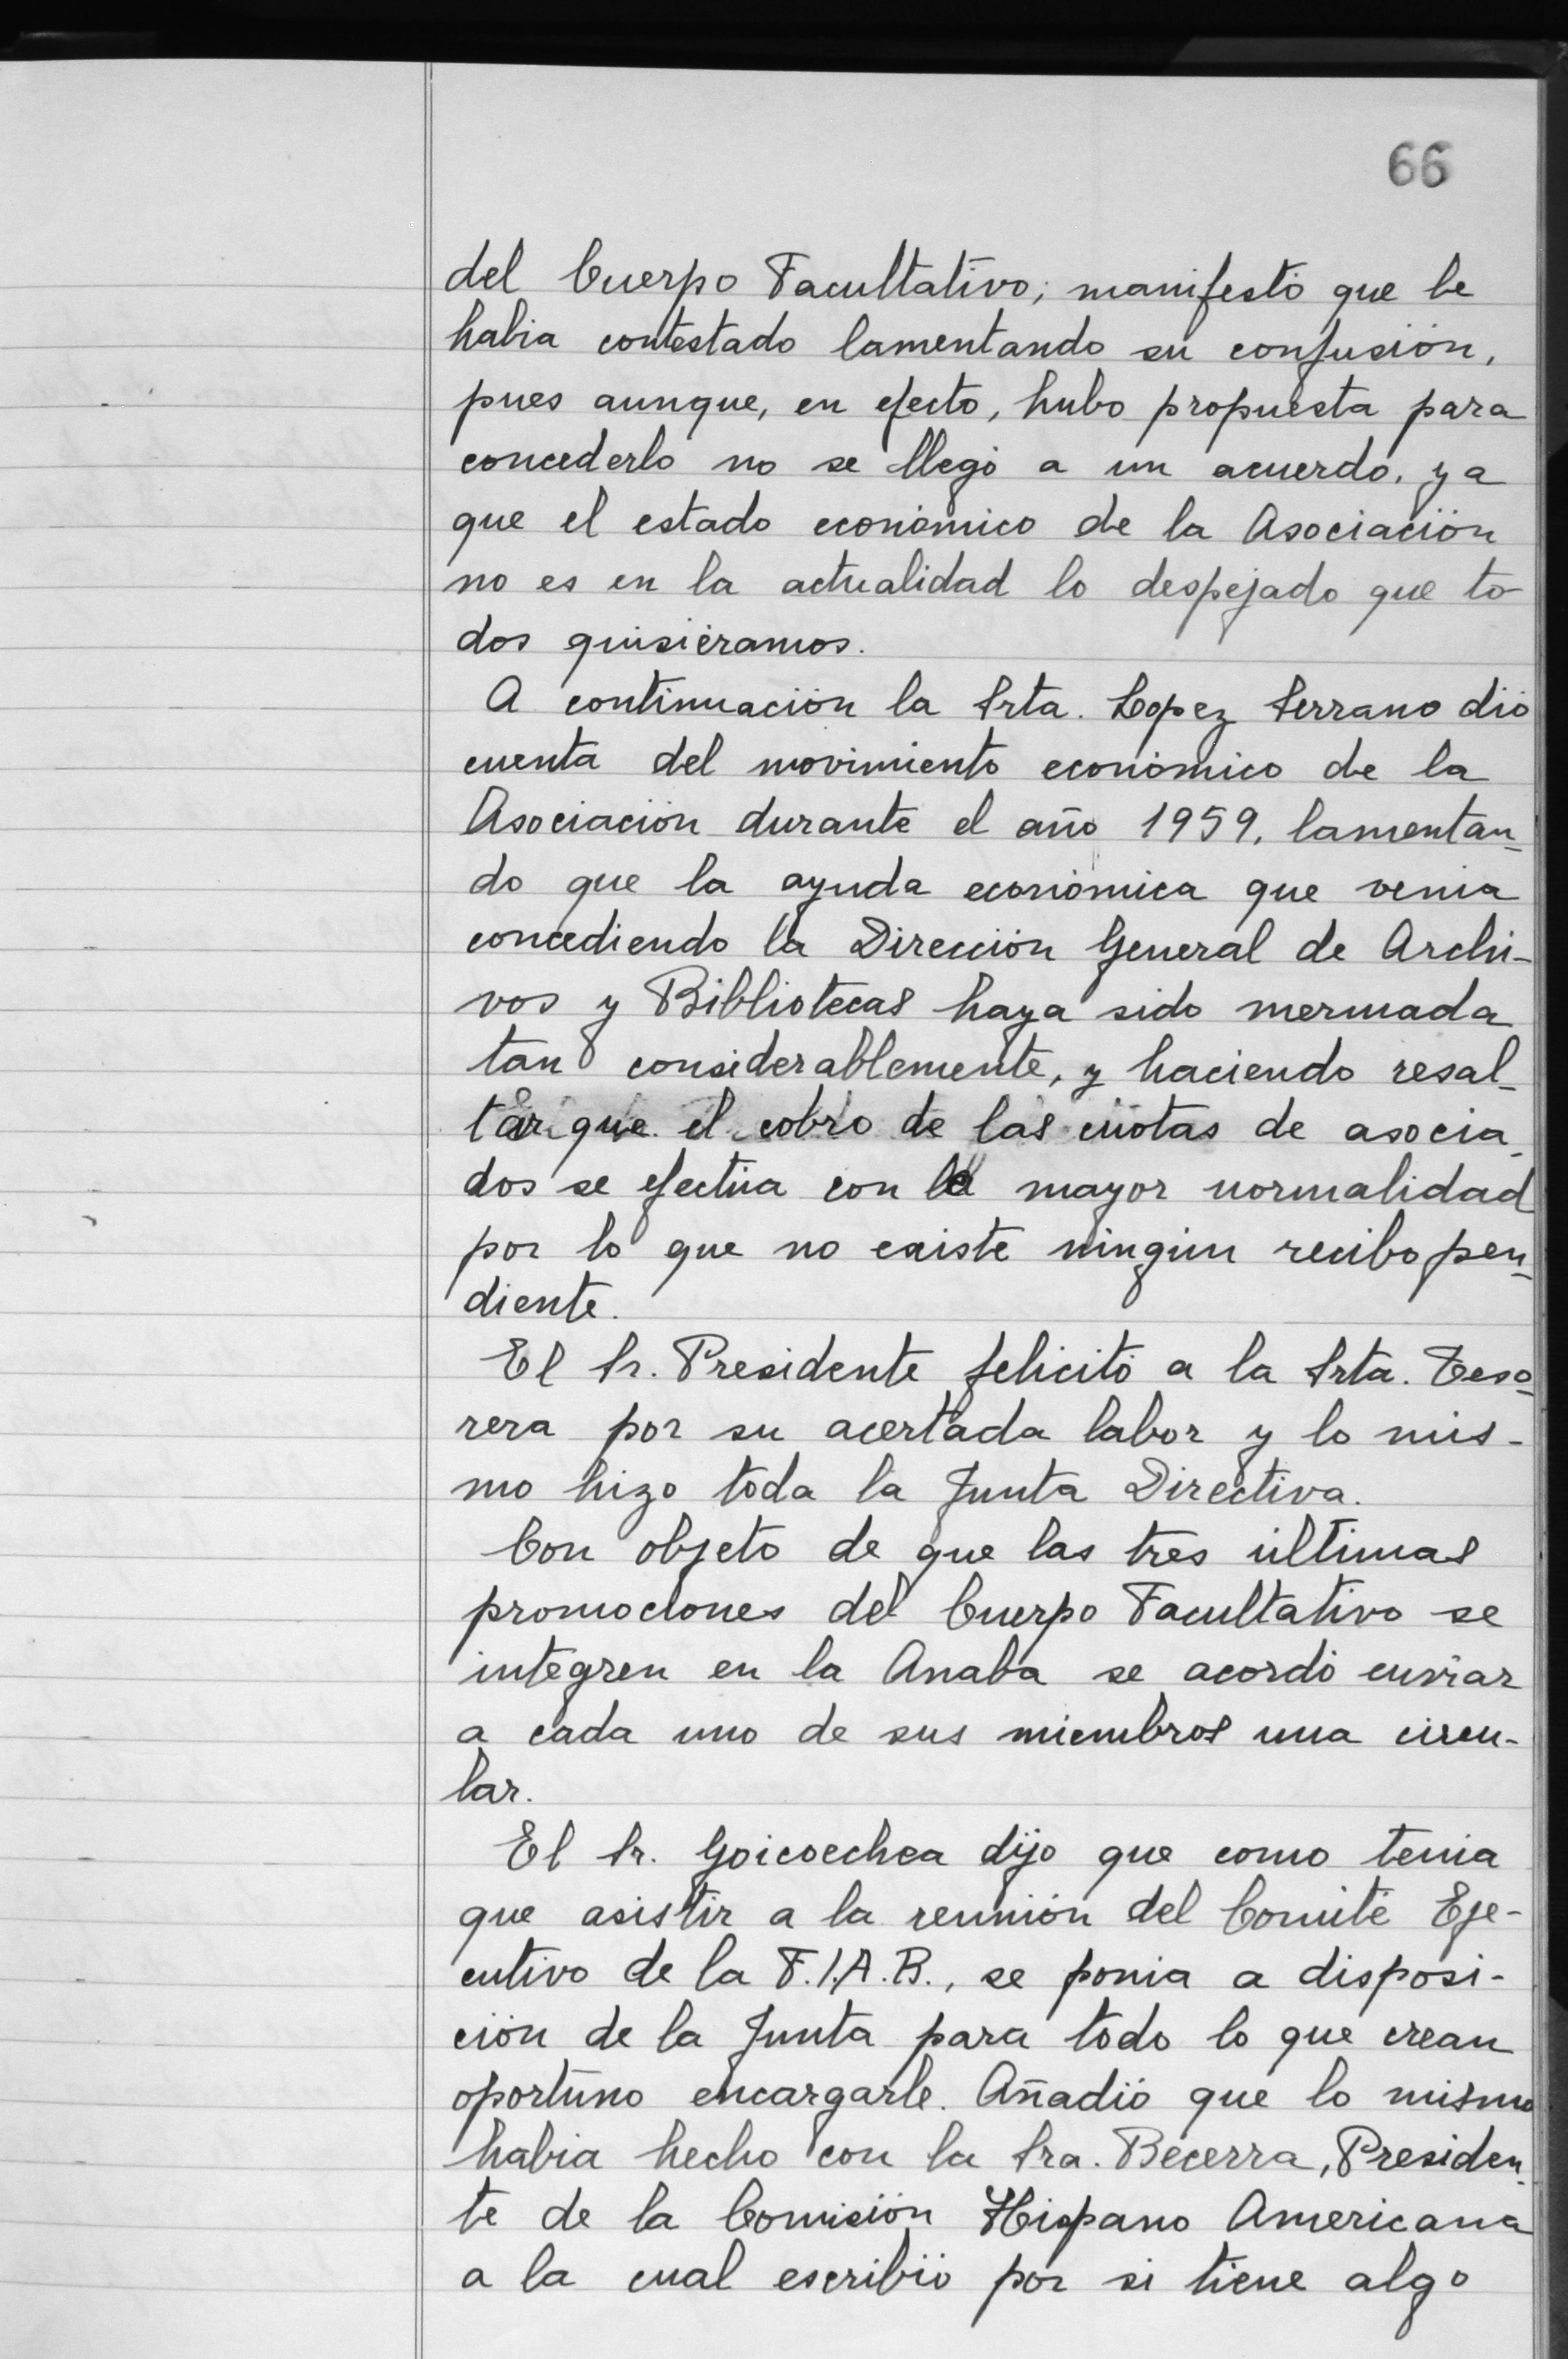 66
del Cuerpo Facultativo; manifestó que le
habia contestado lamentando su confusión,
pues aunque, en efecto, hubo propuesta para
concederlo no se llegó a un acuerdo, ya
que el estado económico de la Asociación
no es en la actualidad lo despejado que to-
dos quisiéramos.
A continuación la Srta. Lopez Serrano dió
cuenta del movimiento económico de la
Asociación durante el año 1959, lamentan-
do que la ayuda económica que venia
concediendo la Dirección General de Archi-
vos y Bibliotecas haya sido mermada
tan considerablemente, y haciendo resal-
tar que el cobro de las cuotas de asocia-
dos se efectúa con la mayor normalidad
por lo que no existe ningún recibo pen-
diente.
El Sr. Presidente felicitó a la Srta. Teso-
rera por su acertada labor y lo mis-
mo hizo toda la Junta Directiva.
Con objeto de que las tres últimas
promociones del Cuerpo Facultativo se
integren en la Anaba se acordó enviar
a cada uno de sus miembros una circu-
lar.
El Sr. Goicoechea dijo que como tenia
que asistir a la reunión del Comité Eje-
cutivo de la F.I.A.B., se ponia a disposi-
ción de la Junta para todo lo que crean
oportuno encargarle. Añadió que lo mismo
habia hecho con la Sra. Becerra, Presiden-
te de la Comisión Hispano Americana
a la cual escribió por si tiene algo